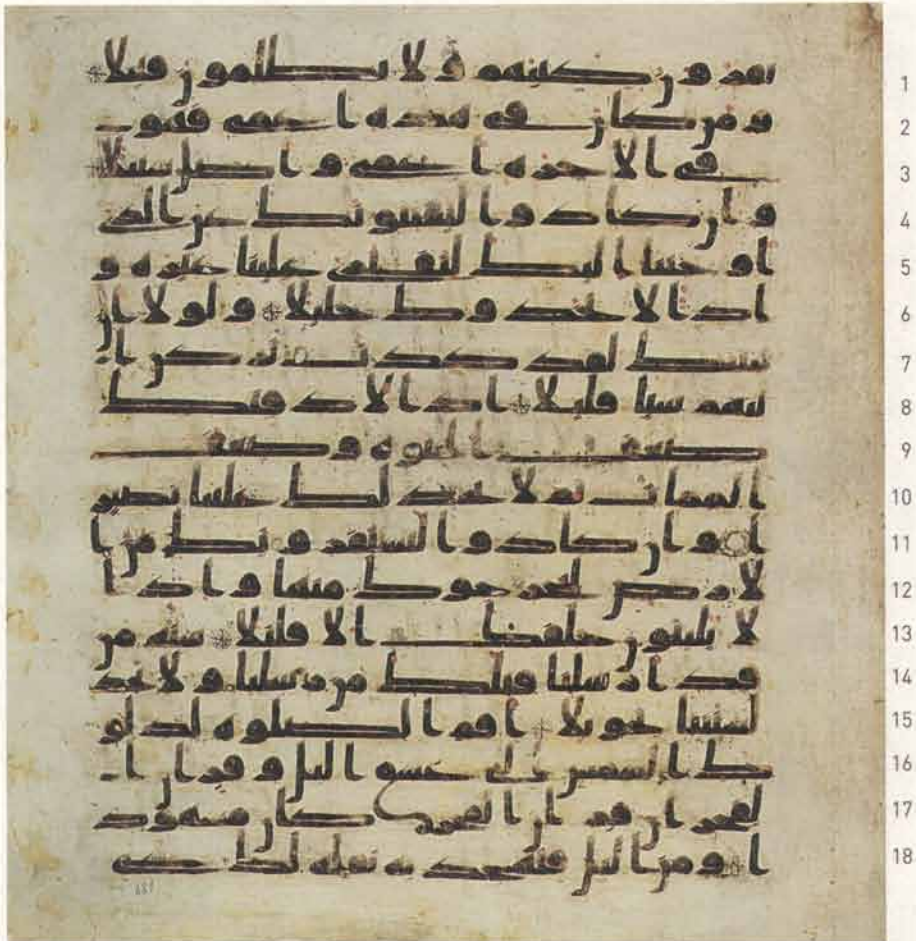 يقرون كتبهم ولا يظلمون فتيلا 1
ومن كان في هذه اعمى فهو 2
في الاخرة اعمى واضل سبيلا 3
وان كادوا ليفتنونك عن الذي 4
اوحينا اليك لتفتري علينا غيره و 5
اذا لاتخذوك خليلا ولولا ان 6
ثبتنك لقد كدت تركن ا 7
ليهم شيا قليلا اذا لاذقنك 8
ضعف الحيوة وضعف 9
الممات ثم لا تجد لك علينا نصير 10
ا وان كادوا ليستفزونك من ا 11
لارض ليخرجوك منها واذا 12
لا يلبثون خلفك الا قليلا سنة من 13
قد ارسلنا قبلك من رسلنا ولا تجد 14
لسنتنا تحويلا اقم الصلوة لدلو 15
ك الشمس الى غسق اليل وقران ا 16
لفجر ان قران الفجر كان مشهود 17
ا ومن اليل فتهجد به نفلة لك 18